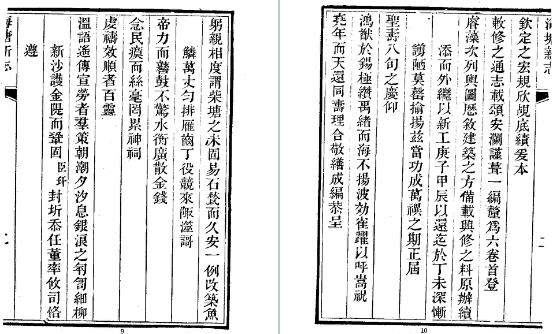 躬親相度謂柴塘之未固易石甃而久安一例改築魚
鱗萬丈勻排雁齒丁役競來郵遞謌
帝力而鼛鼓不驚水衡廣散金錢
念民瘼而絲毫罔累神祠
虔禱效順者百靈
溫語遙傳宣勞者羣策朝潮夕汐息銀浪之訇訇細柳
新沙護金隄而鞏固臣玕封圻忝任董率攸司恪
遵
海塘新志
9
海塘新志
欽定之宏規欣覩底績爰本
敕修之通志載頌安瀾謹聲一編釐爲六卷首登
睿藻次列輿圖歷敘建築之方備載興修之料原辦續
添而外繼以新工庚子甲辰以還迄於丁未深慚
謭陋莫罄揄揚茲當功成萬禩之期正屆
聖壽八旬之慶仰
鴻猷於錫極纘禹緒而海不揚波效雀躍以呼嵩祝
堯年而天還同壽理合敬繕成編恭呈
10